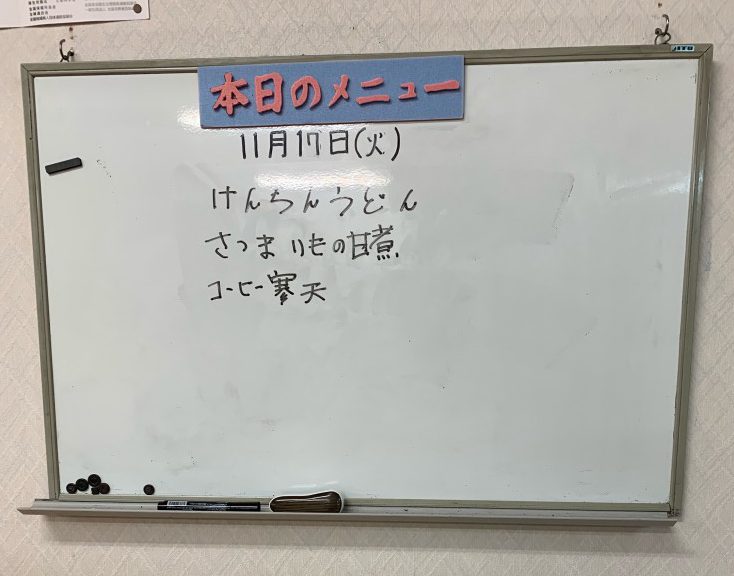 本日のメニュー
11月17日(火)
けんちんうどん
さつまいもの甘煮
コーヒー寒天